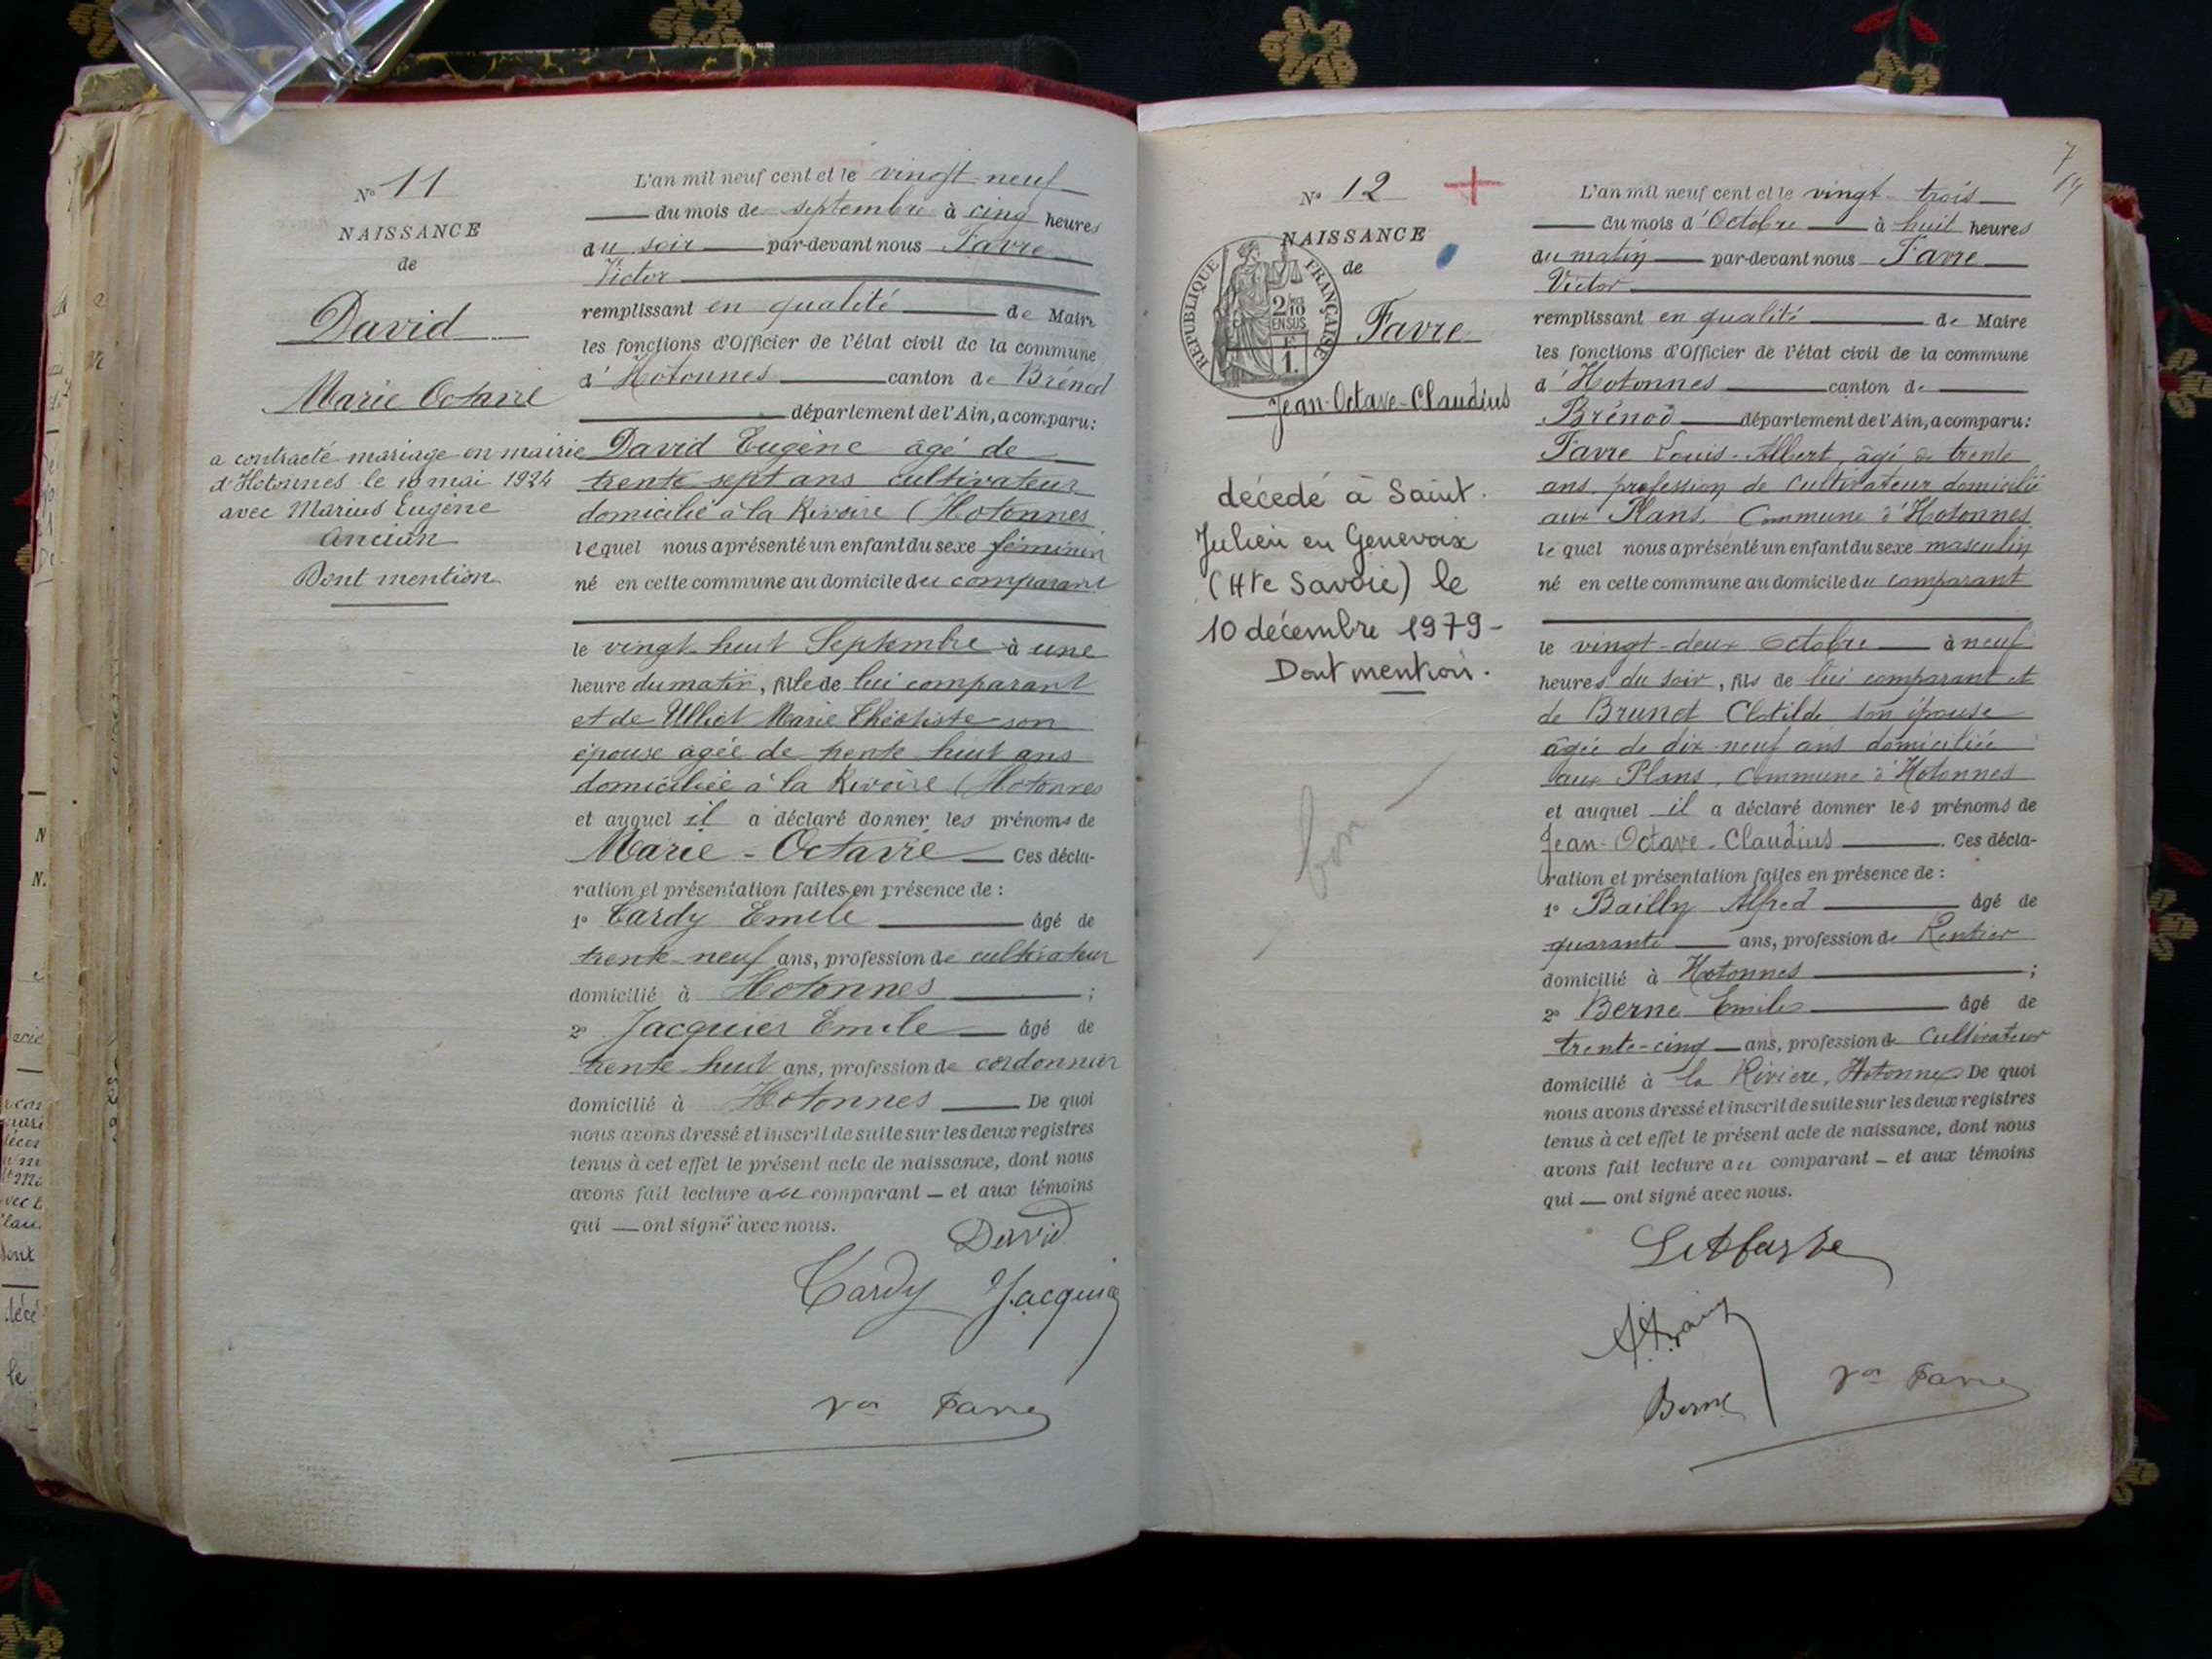 No 11
NAISSANCE
de
David
Marie Octavie
a contracté mariage en mairie
d'Hotonnes le 10 mai 1924
avec Marius Eugène
Ancian
Dont mention
L'an mil neuf cent et le vingt-neuf
du mois de septembre à cinq heures
du soir par-devant nous Favre
Victor
remplissant en qualité de Maire
les fonctions d'Officier de l'état civil de la commune
d'Hotonnes canton de Brénod
département de l'Ain, a comparu:
David Eugène âgé de
trente sept ans cultivateur
domicilié à la Rivoire (Hotonnes
lequel nous a présenté un enfant du sexe féminin
né en cette commune au domicile du comparant
le vingt-huit Septembre à une
heure du matin, fille de lui comparant
et de Ulliet Marie Théotiste son
épouse agée de trente huit ans
domiciliée à la Rivoire (Hotonnes
et auquel il a déclaré donner les prénoms de
Marie-Octavie Ces décla-
ration et présentation faites en présence de :
1º Tardy Emile âgé de
trente-neuf ans, profession de cultivateur
domicilié à Hotonnes ;
2º Jacquier Emile âgé de
trente-huit ans, profession de cordonnier
domicilié à Hotonnes De quoi
nous avons dressé et inscrit de suite sur les deux registres
tenus à cet effet le présent acte de naissance, dont nous
avons fait lecture au comparant et aux témoins
qui ont signé avec nous.
David
Tardy Jacquier
Vor Favre
7
No 12
NAISSANCE
de
RÉPUBLIQUE FRANÇAISE
2/10
EN SUS
1.
Favre
Jean-Octave-Claudius
décedé à Saint.
Julien en Genevoix
(Hte Savoie) le
10 décembre 1979-
Dont mention.
bon
L'an mil neuf cent et le vingt-trois
du mois d'Octobre à huit heures
du matin par-devant nous Favre
Victor
remplissant en qualité de Maire
les fonctions d'Officier de l'état civil de la commune
d'Hotonnes canton de
Brénod département de l'Ain, a comparu:
Favre Louis-Albert, âgé de trente
ans, profession de cultivateur domicilié
aux Plans, Commune d'Hotonnes
lequel nous a présenté un enfant du sexe masculin
né en cette commune au domicile du comparant
le vingt-deux Octobre à neuf
heures du soir, fils de lui comparant et
de Brunet Clotilde son épouse
âgée de dix-neuf ans domiciliée
aux Plans, Commune d'Hotonnes
et auquel il a déclaré donner les prénoms de
Jean-Octave-Claudius. Ces décla-
ration et présentation faites en présence de :
1º Bailly Alfred âgé de
quarante ans, profession de Rentier
domicilié à Hotonnes ;
2º Berne Emile âgé de
trente-cinq ans, profession de Cultivateur
domicilié à la Rivière, Hotonnes De quoi
nous avons dressé et inscrit de suite sur les deux registres
tenus à cet effet le présent acte de naissance, dont nous
avons fait lecture au comparant et aux témoins
qui ont signé avec nous.
Berne
Vor Favre